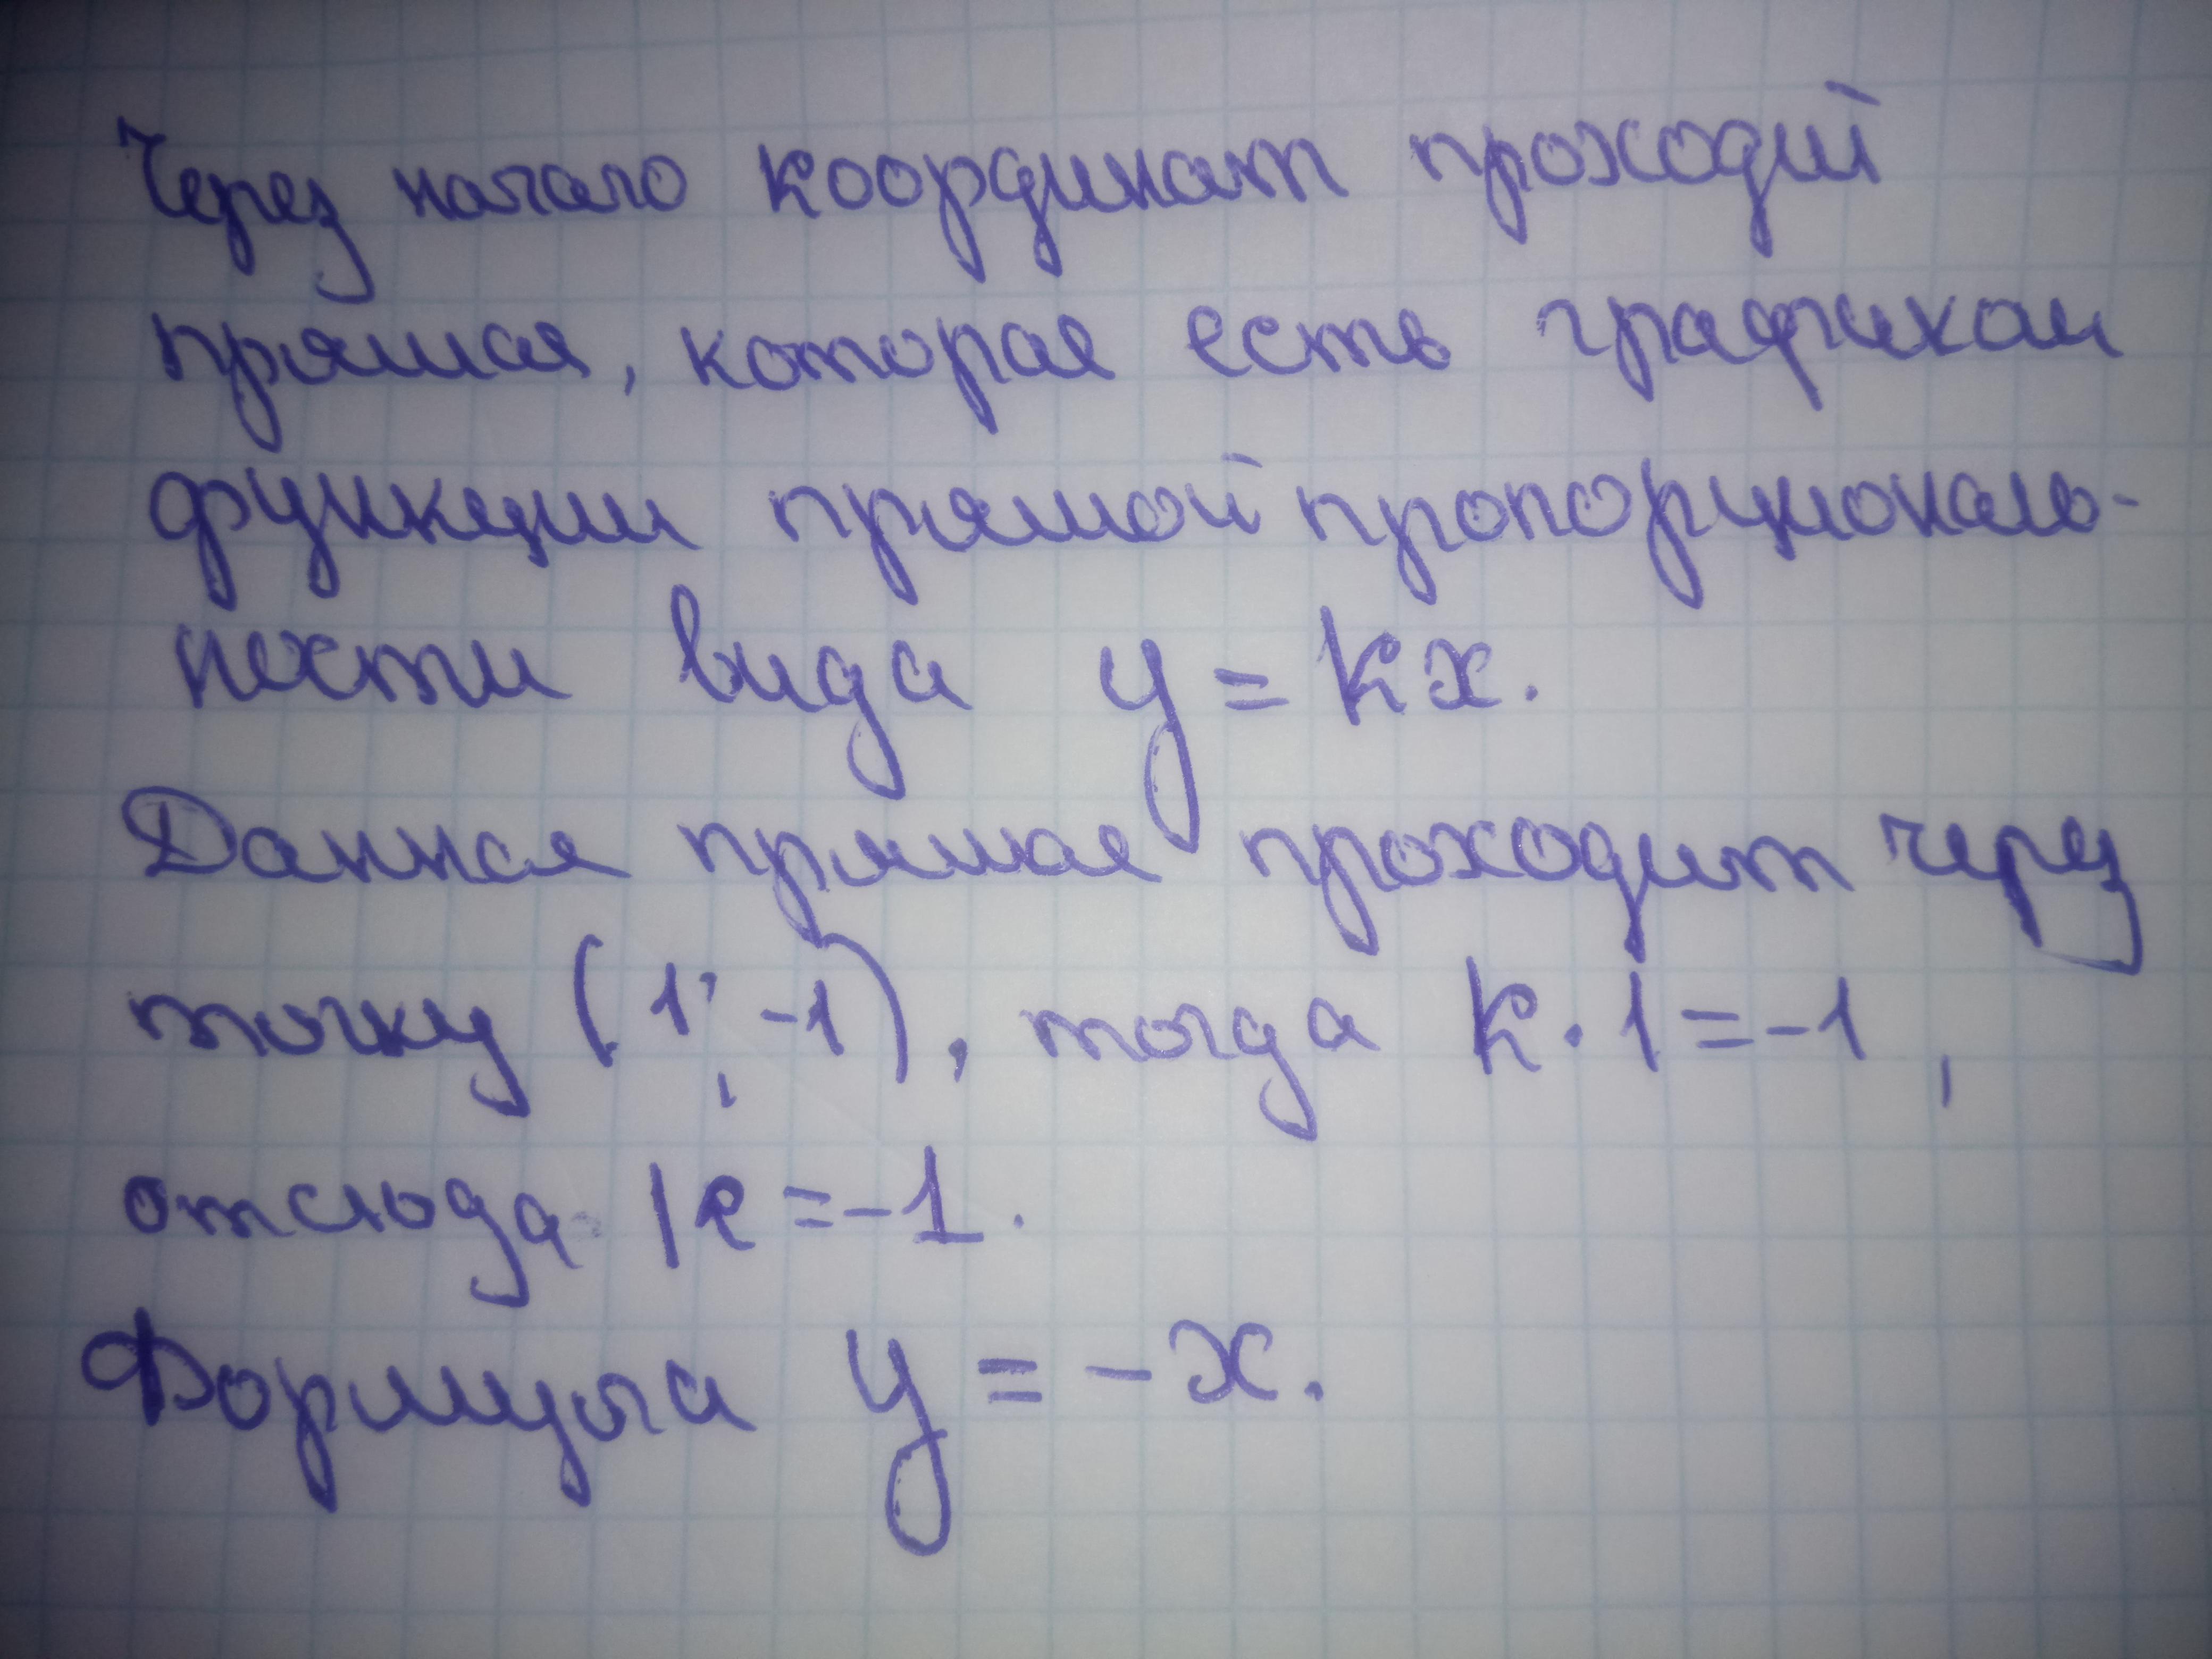 Через начало координат проходит
прямая, которая есть графиком
функции прямой пропорциональ-
ности вида y = kx.
Данная прямая проходит через
точку (1; -1), тогда k · 1 = -1,
отсюда k = -1.
Формула y = -x.